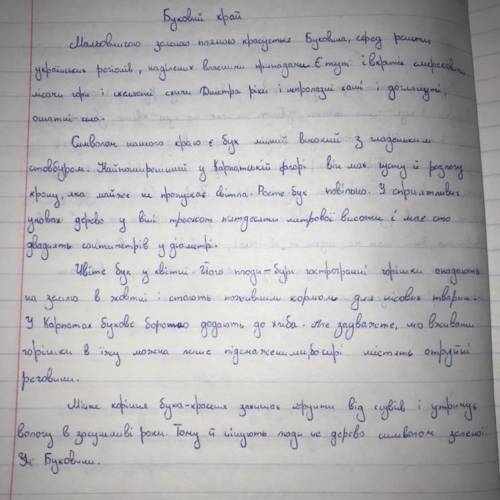 Буковий край
Мальовничою зеленою плямою красується Буковина, серед решти
українських регіонів, наділених власними принадами. Є тут і вкриті смерековими
лісами гори і скелясті схили Дністра ріки і непролазні хащі і доглянуті,
ошатні села.
Символом нашого краю є бук міцний високий з гладеньким
стовбуром. Найпоширеніший у Карпатській флорі він має густу й розлогу
крону, яка майже не пропускає світла. Росте бук повільно. У сприятливих
умовах дерево у віці трьохсот пятдесяти метрової висоти і має сто
двадцять сантиметрів у діаметрі.
Цвіте бук у квітні. Його плоди - бурі гострогранні горішки опадають
на землю в жовтні і стають поживним кормом для лісових тварин.
У Карпатах букове борошно додають до хліба. Але зауважте, що вживати
горішки в їжу можна лише підсмаженими, бо сирі містять отруйні
речовини.
Міцне коріння бука-красеня захищає ґрунти від зсувів і утримує
вологу в засушливі роки. Тому й вішують люди це дерево символом зелено-
ї Буковини.